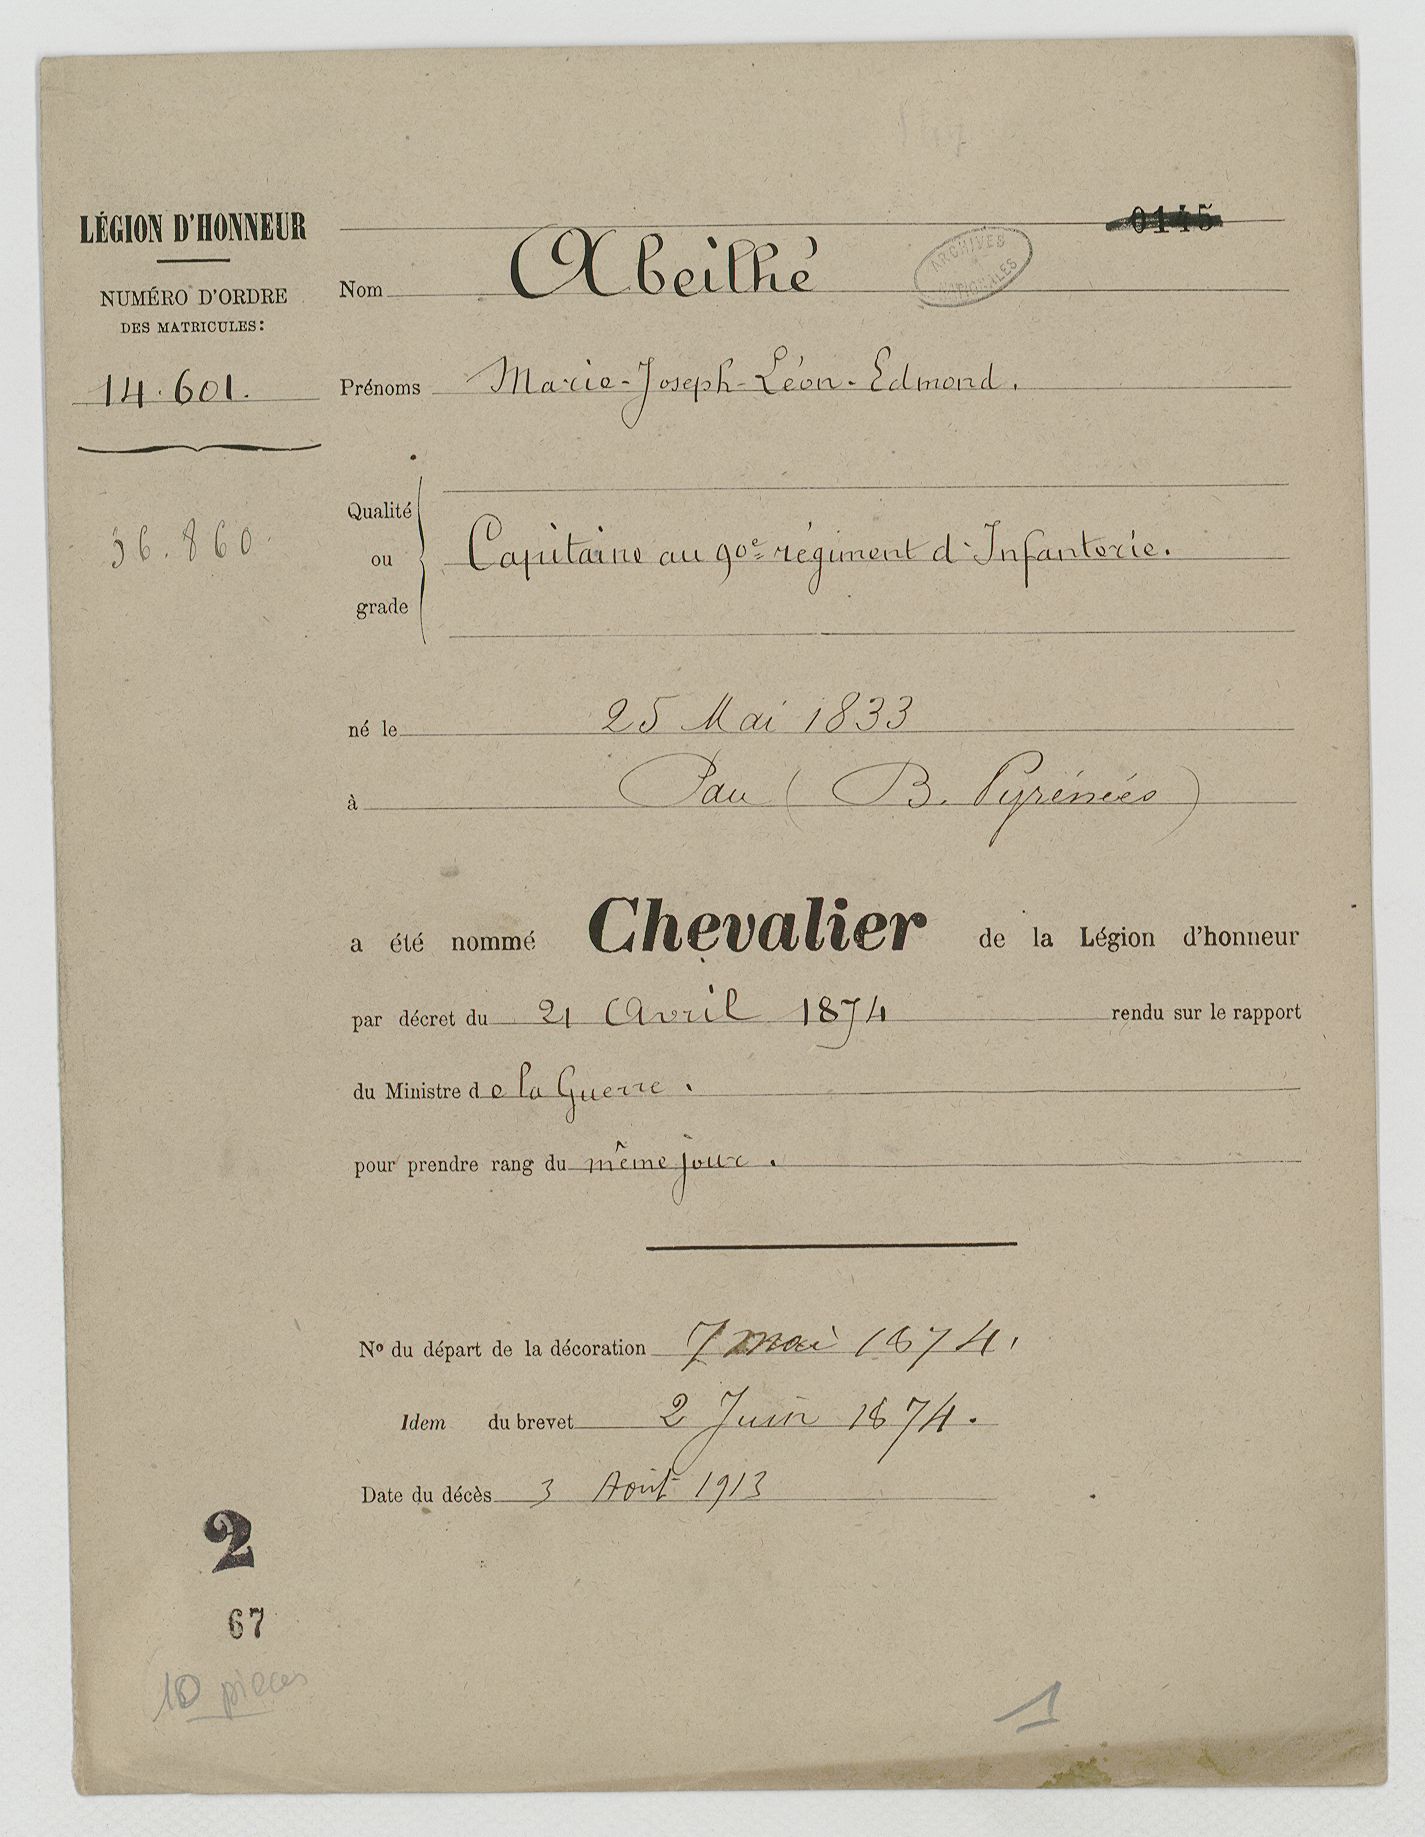 0145
LÉGION D'HONNEUR
NUMÉRO D'ORDRE
DES MATRICULES:
14.601.
36.860.
Nom Abeilhé
ARCHIVES NATIONALES
Prénoms Marie-Joseph-Léon-Edmond.
Qualité
ou
grade
Capitaine au 90e régiment d'Infanterie.
né le 25 Mai 1833
à Pau (B. Pyrénées)
a été nommé Chevalier de la Légion d'honneur
par décret du 21 Avril 1874 rendu sur le rapport
du Ministre de la Guerre.
pour prendre rang du même jour.
No du départ de la décoration 7 mai 1874.
Idem du brevet 2 Juin 1874.
Date du décès 3 Août 1913
2
67
10 pieces
1